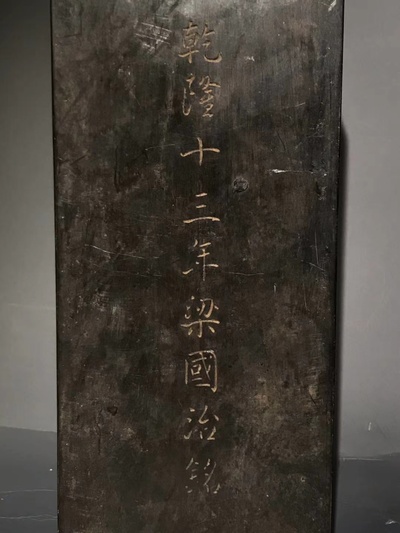 乾隆十三年梁國治銘